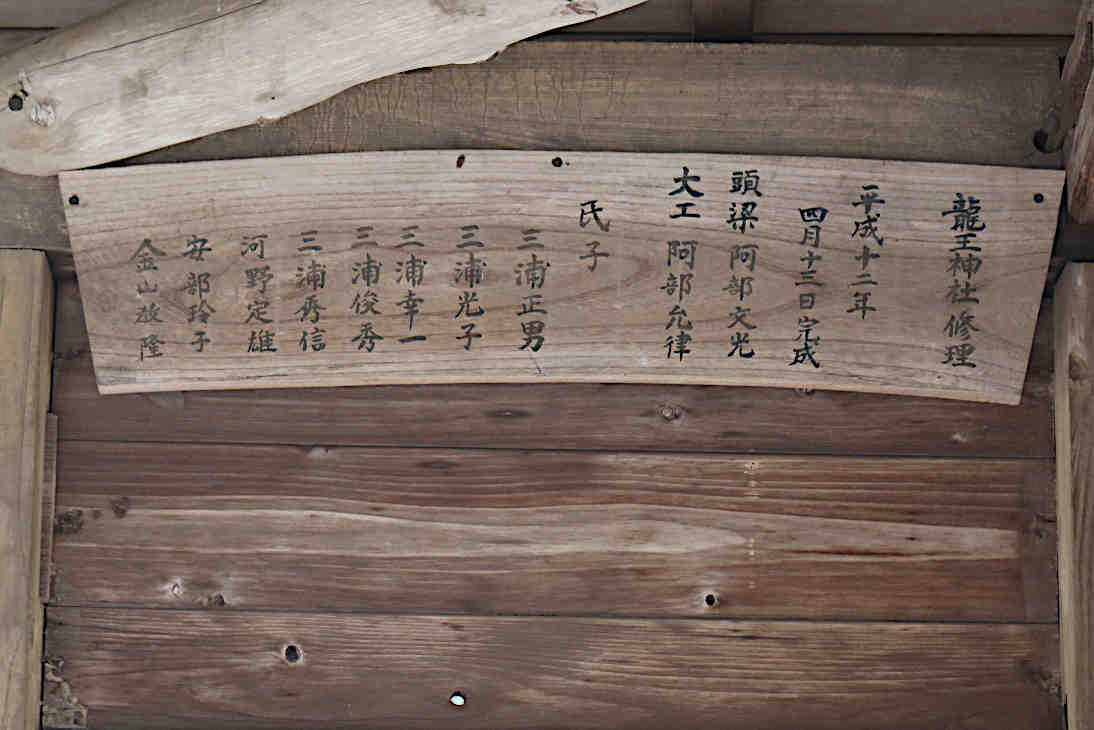 龍王神社修理
平成十二年
四月十三日完成
頭梁 阿部文光
大工 阿部允律
氏子
三浦正男
三浦光子
三浦幸一
三浦俊秀
三浦秀信
河野定雄
安部玲子
金山放隆